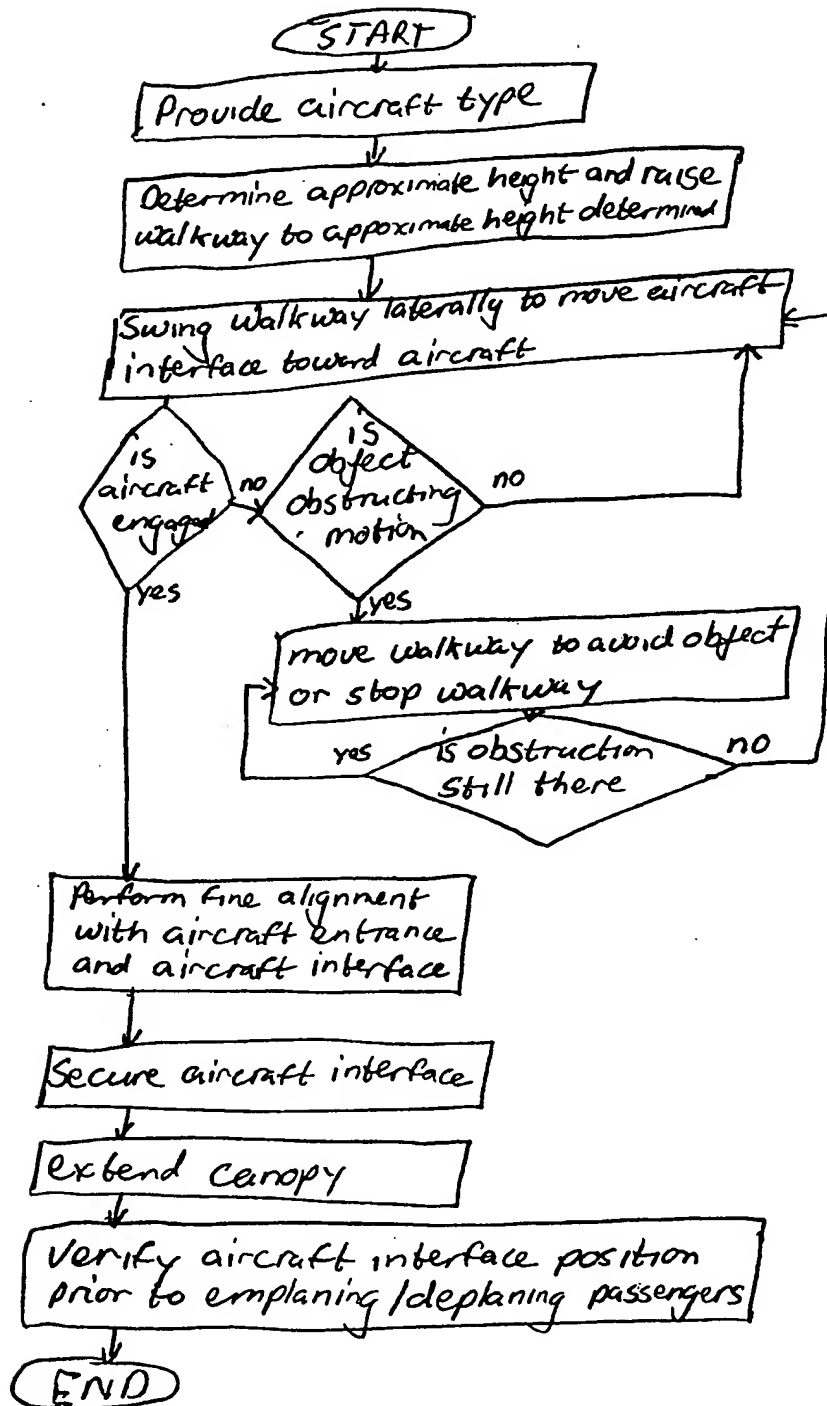 START
Provide aircraft type
Determine approximate height and raise
walkway to appoximate height determined
Swing walkway laterally to move aircraft
interface toward aircraft
is
aircraft
engaged
no
is
object
obstructing
motion
no
yes
yes
move walkway to avoid object
or stop walkway
yes
is obstruction
still there
no
Perform fine alignment
with aircraft entrance
and aircraft interface
Secure aircraft interface
extend canopy
Verify aircraft interface position
prior to emplaning/deplaning passengers
END